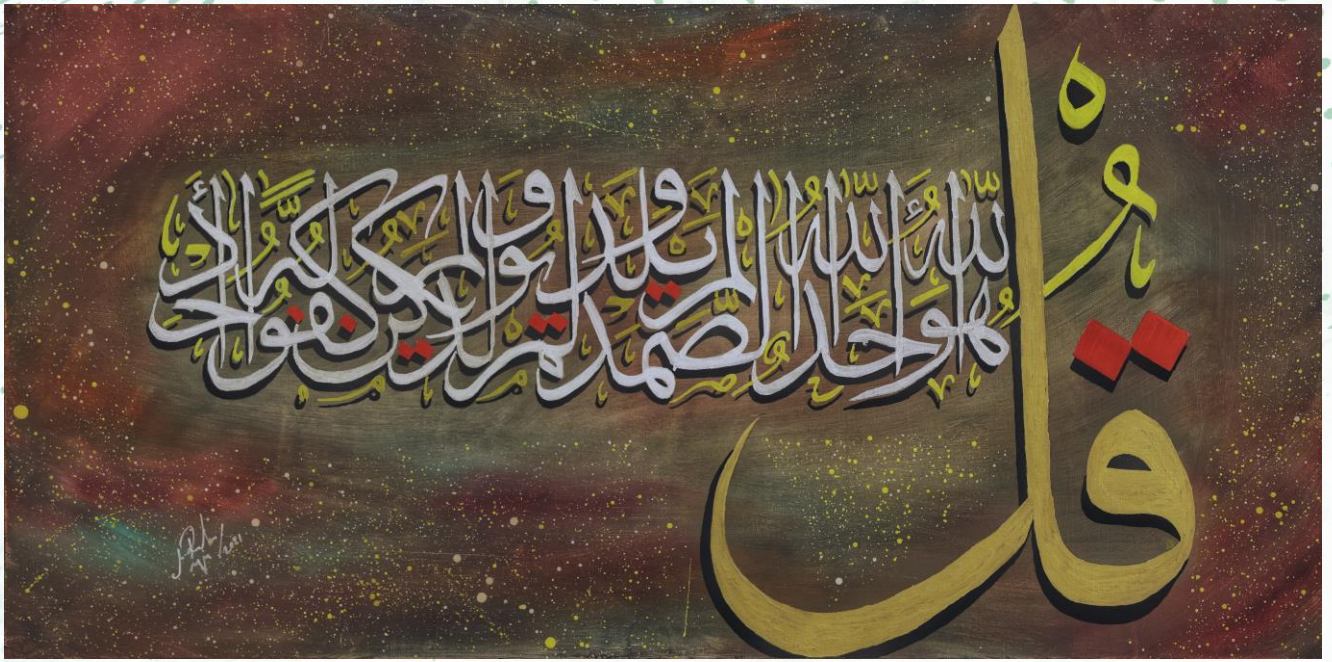 قُلْ هُوَ اللّٰهُ أَحَدٌ اللّٰهُ الصَّمَدُ لَمْ يَلِدْ وَلَمْ يُولَدْ وَلَمْ يَكُنْ لَهُ كُفُوًا أَحَدٌ